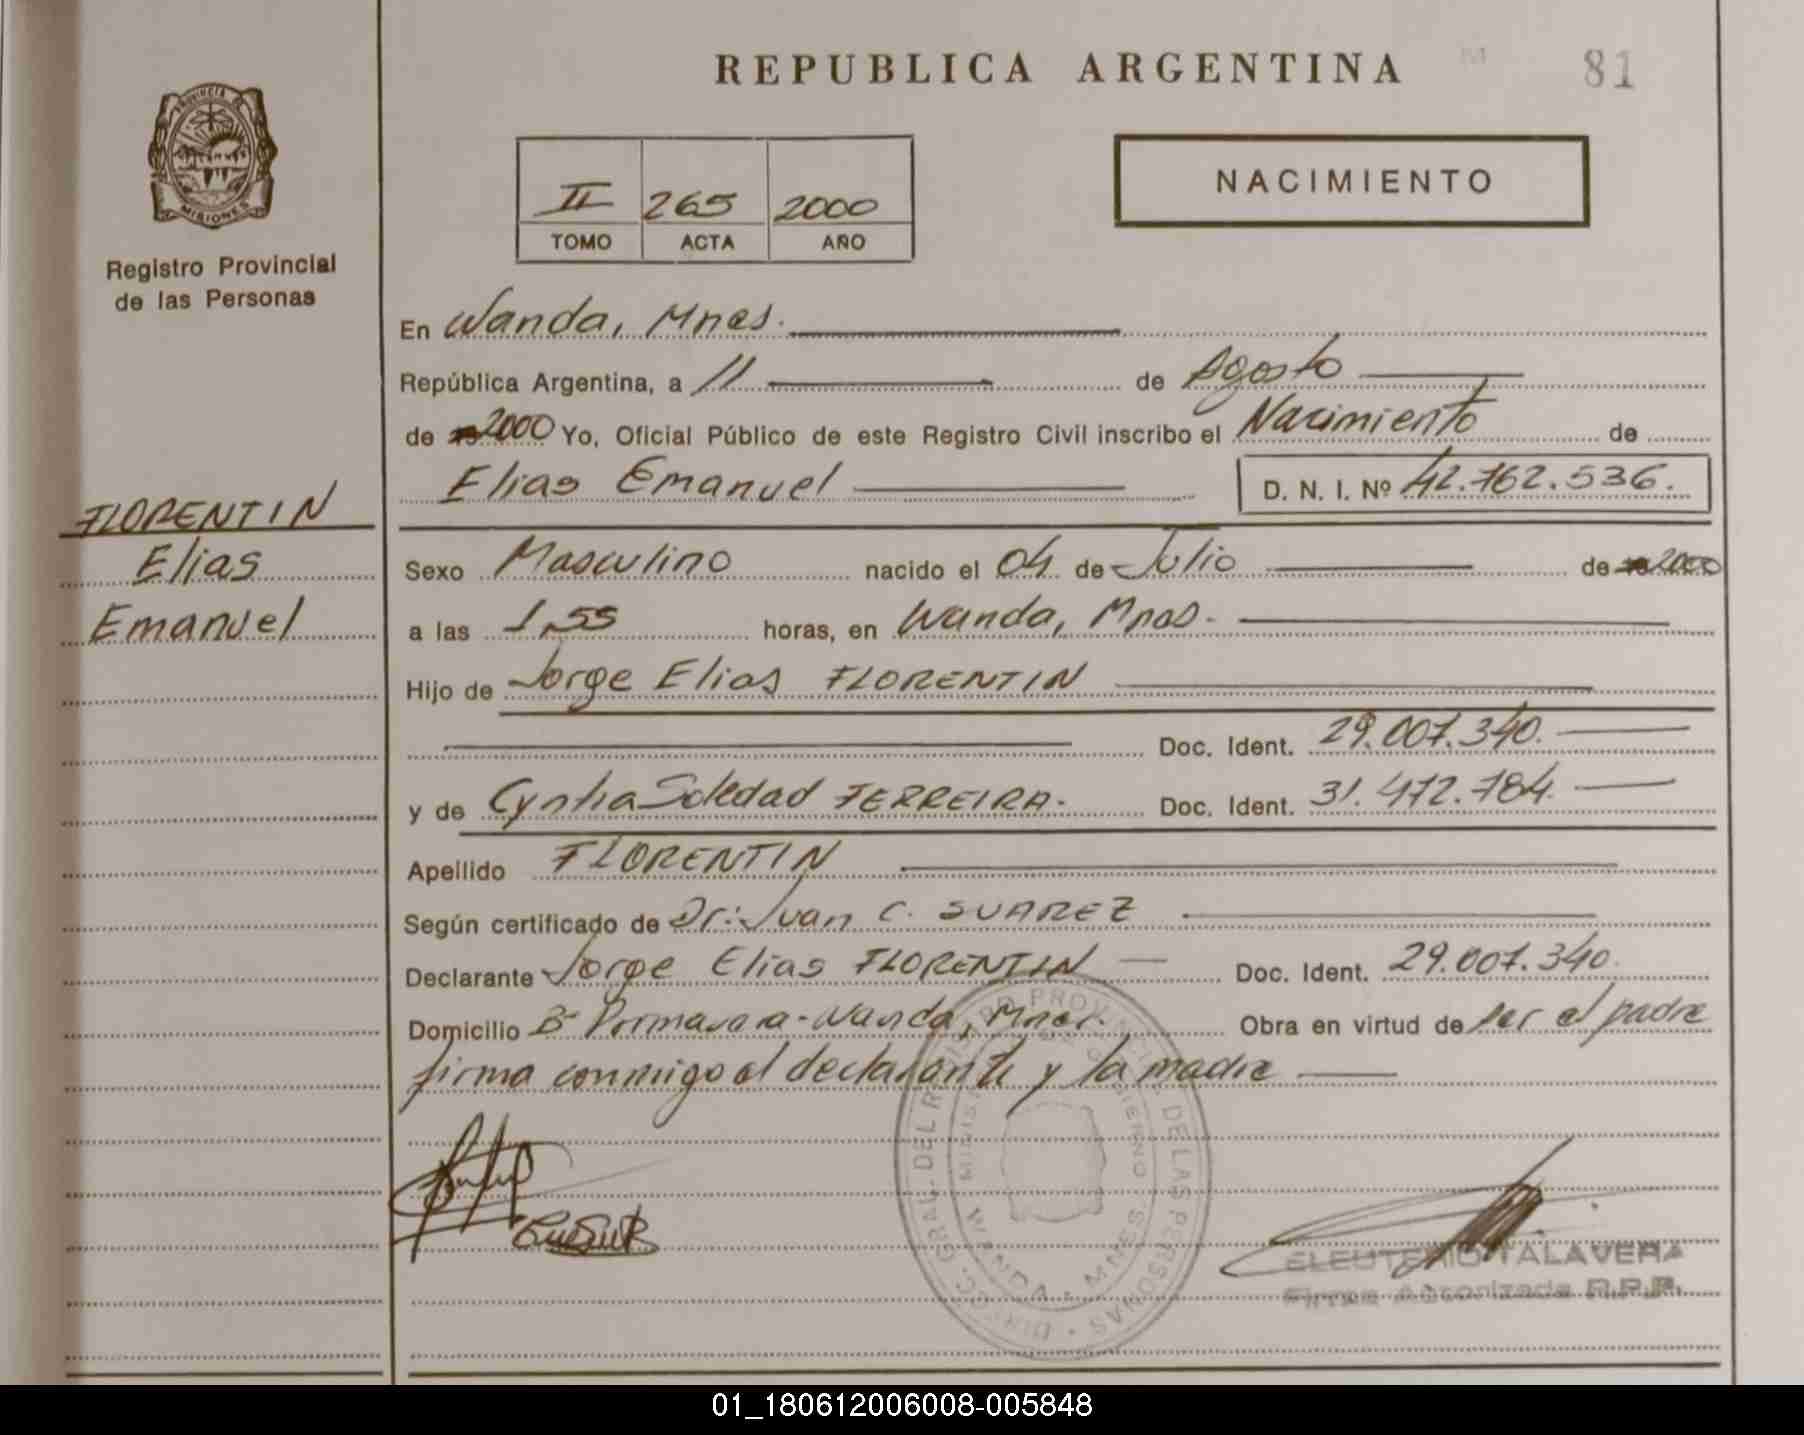 REPUBLICA ARGENTINA
81
PROVINCIA DE
MISIONES
Registro Provincial
de las Personas
II 265 2000
TOMO ACTA AÑO
NACIMIENTO
En Wanda, Mnes.
República Argentina, a 11 de Agosto
de 2000 Yo, Oficial Público de este Registro Civil inscribo el Nacimiento de
Elias Emanuel D. N. I. Nº 42.762.536.
FLORENTIN
Elias
Emanuel
Sexo Masculino nacido el 04 de Julio de 2000
a las 1,55 horas, en Wanda, Mnes.
Hijo de Jorge Elias FLORENTIN
Doc. Ident. 29.007.340.
y de Cynthia Soledad FERREIRA. Doc. Ident. 31.472.784.
Apellido FLORENTIN
Según certificado de Dr: Juan C. SUAREZ
Declarante Jorge Elias FLORENTIN Doc. Ident. 29.007.340.
Domicilio Bº Primavera - Wanda, Mnes. Obra en virtud de ser el padre
firma conmigo el declarante y la madre
DIRECC. GRAL. DEL REGISTRO PROVINCIAL DE LAS PERSONAS
WANDA - MNES.
ELEUTERIO TALAVERA
Firma Autorizada R.P.P.
01_180612006008-005848